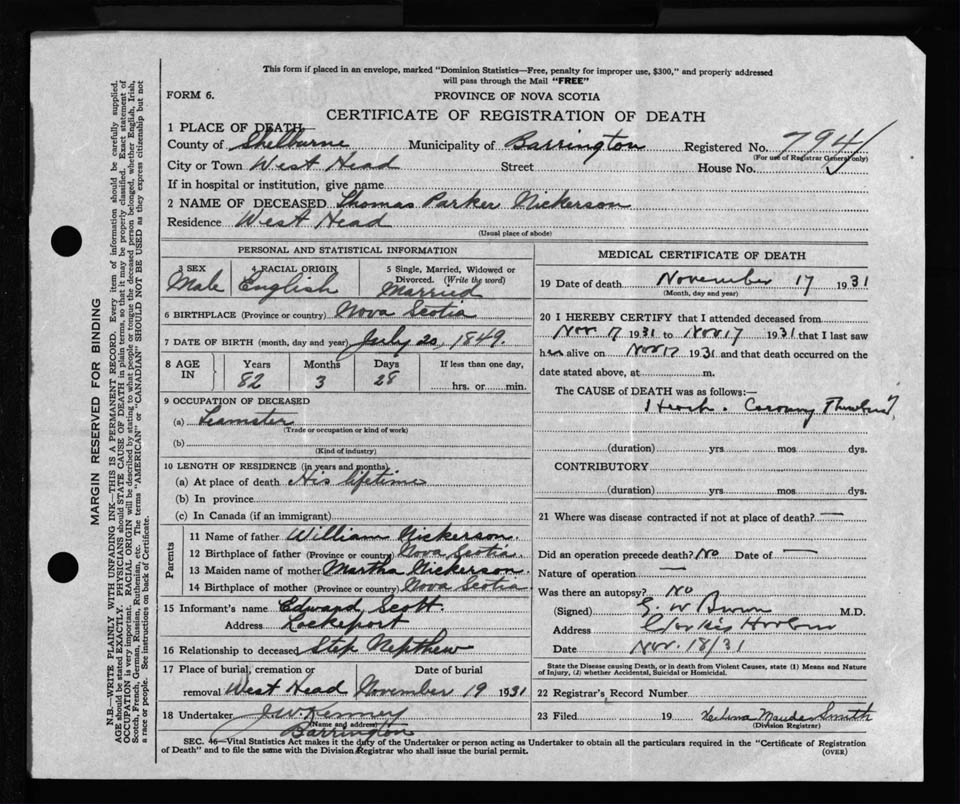 This form if placed in an envelope, marked "Dominion Statistics—Free, penalty for improper use, $300," and properly addressed
will pass through the Mail "FREE"
FORM 6.
PROVINCE OF NOVA SCOTIA
CERTIFICATE OF REGISTRATION OF DEATH
1 PLACE OF DEATH—
County of Shelburne Municipality of Barrington Registered No. 7941
(For use of Registrar General only)
City or Town West Head Street House No.
If in hospital or institution, give name
2 NAME OF DECEASED Thomas Parker Nickerson
Residence West Head
(Usual place of abode)
PERSONAL AND STATISTICAL INFORMATION
3 SEX 4 RACIAL ORIGIN 5 Single, Married, Widowed or
Divorced. (Write the word)
Male English Married
6 BIRTHPLACE (Province or country) Nova Scotia
7 DATE OF BIRTH (month, day and year) July 20, 1849.
8 AGE IN Years Months Days If less than one day,
82 3 28 hrs. or min.
9 OCCUPATION OF DECEASED
(a) Teamster
(Trade or occupation or kind of work)
(b)
(Kind of industry)
10 LENGTH OF RESIDENCE (in years and months)
(a) At place of death His lifetime
(b) In province
(c) In Canada (if an immigrant)
Parents
11 Name of father William Nickerson.
12 Birthplace of father (Province or country) Nova Scotia.
13 Maiden name of mother Martha Nickerson
14 Birthplace of mother (Province or country) Nova Scotia
15 Informant's name Edward Scott.
Address Lockeport
16 Relationship to deceased Step Nepthew
17 Place of burial, cremation or Date of burial
removal West Head November 19 1931
18 Undertaker J. W. Kenney
(Name and address)
Barrington
MEDICAL CERTIFICATE OF DEATH
19 Date of death November 17 1931
(Month, day and year)
20 I HEREBY CERTIFY that I attended deceased from
Nov. 17 1931 to Nov 17 1931 that I last saw
him alive on Nov 17 1931 and that death occurred on the
date stated above, at m.
The CAUSE OF DEATH was as follows:—
(duration) yrs. mos. dys.
CONTRIBUTORY
(duration) yrs. mos. dys.
21 Where was disease contracted if not at place of death? —
Did an operation precede death? No Date of —
Nature of operation —
Was there an autopsy? No
(Signed) G. W. M.D.
Address Harbour
Date Nov. 18/31
State the Disease causing Death, or in death from Violent Causes, state (1) Means and Nature
of Injury, (2) whether Accidental, Suicidal or Homicidal.
22 Registrar's Record Number
23 Filed 19 Smith
(Division Registrar)
SEC. 46—Vital Statistics Act makes it the duty of the Undertaker or person acting as Undertaker to obtain all the particulars required in the "Certificate of Registration
of Death" and to file the same with the Division Registrar who shall issue the burial permit. (OVER)
MARGIN RESERVED FOR BINDING
N.B.—WRITE PLAINLY WITH UNFADING INK—THIS IS A PERMANENT RECORD. Every item of information should be carefully supplied.
AGE should be stated EXACTLY. PHYSICIANS should STATE CAUSE OF DEATH in plain terms, so that it may be properly classified. Exact statement of
OCCUPATION is very important. RACIAL ORIGIN will be described by stating to what people or tongue the deceased person belonged, whether English, Irish,
Scotch, French, German, Russian, Ruthenian, etc. The terms "AMERICAN" or "CANADIAN" SHOULD NOT BE USED as they express citizenship but not
a race or people. See instructions on back of Certificate.